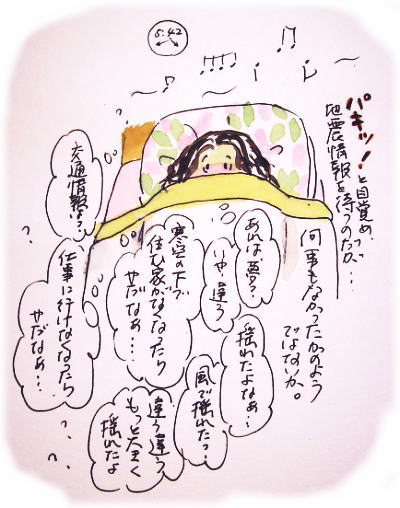 5:42
パキッ！と目覚め、
地震情報を待つのだが…
何事もなかったかのよう
ではないか。
あれは夢？？
いや、違う
揺れたよなぁ…
風で揺れた？…
違う違う
もっと大きく
揺れたよ
寒空の下で
住む家がなくなったら
やだなぁ…
交通情報は？？
仕事に行けなくなったら
やだなぁ…